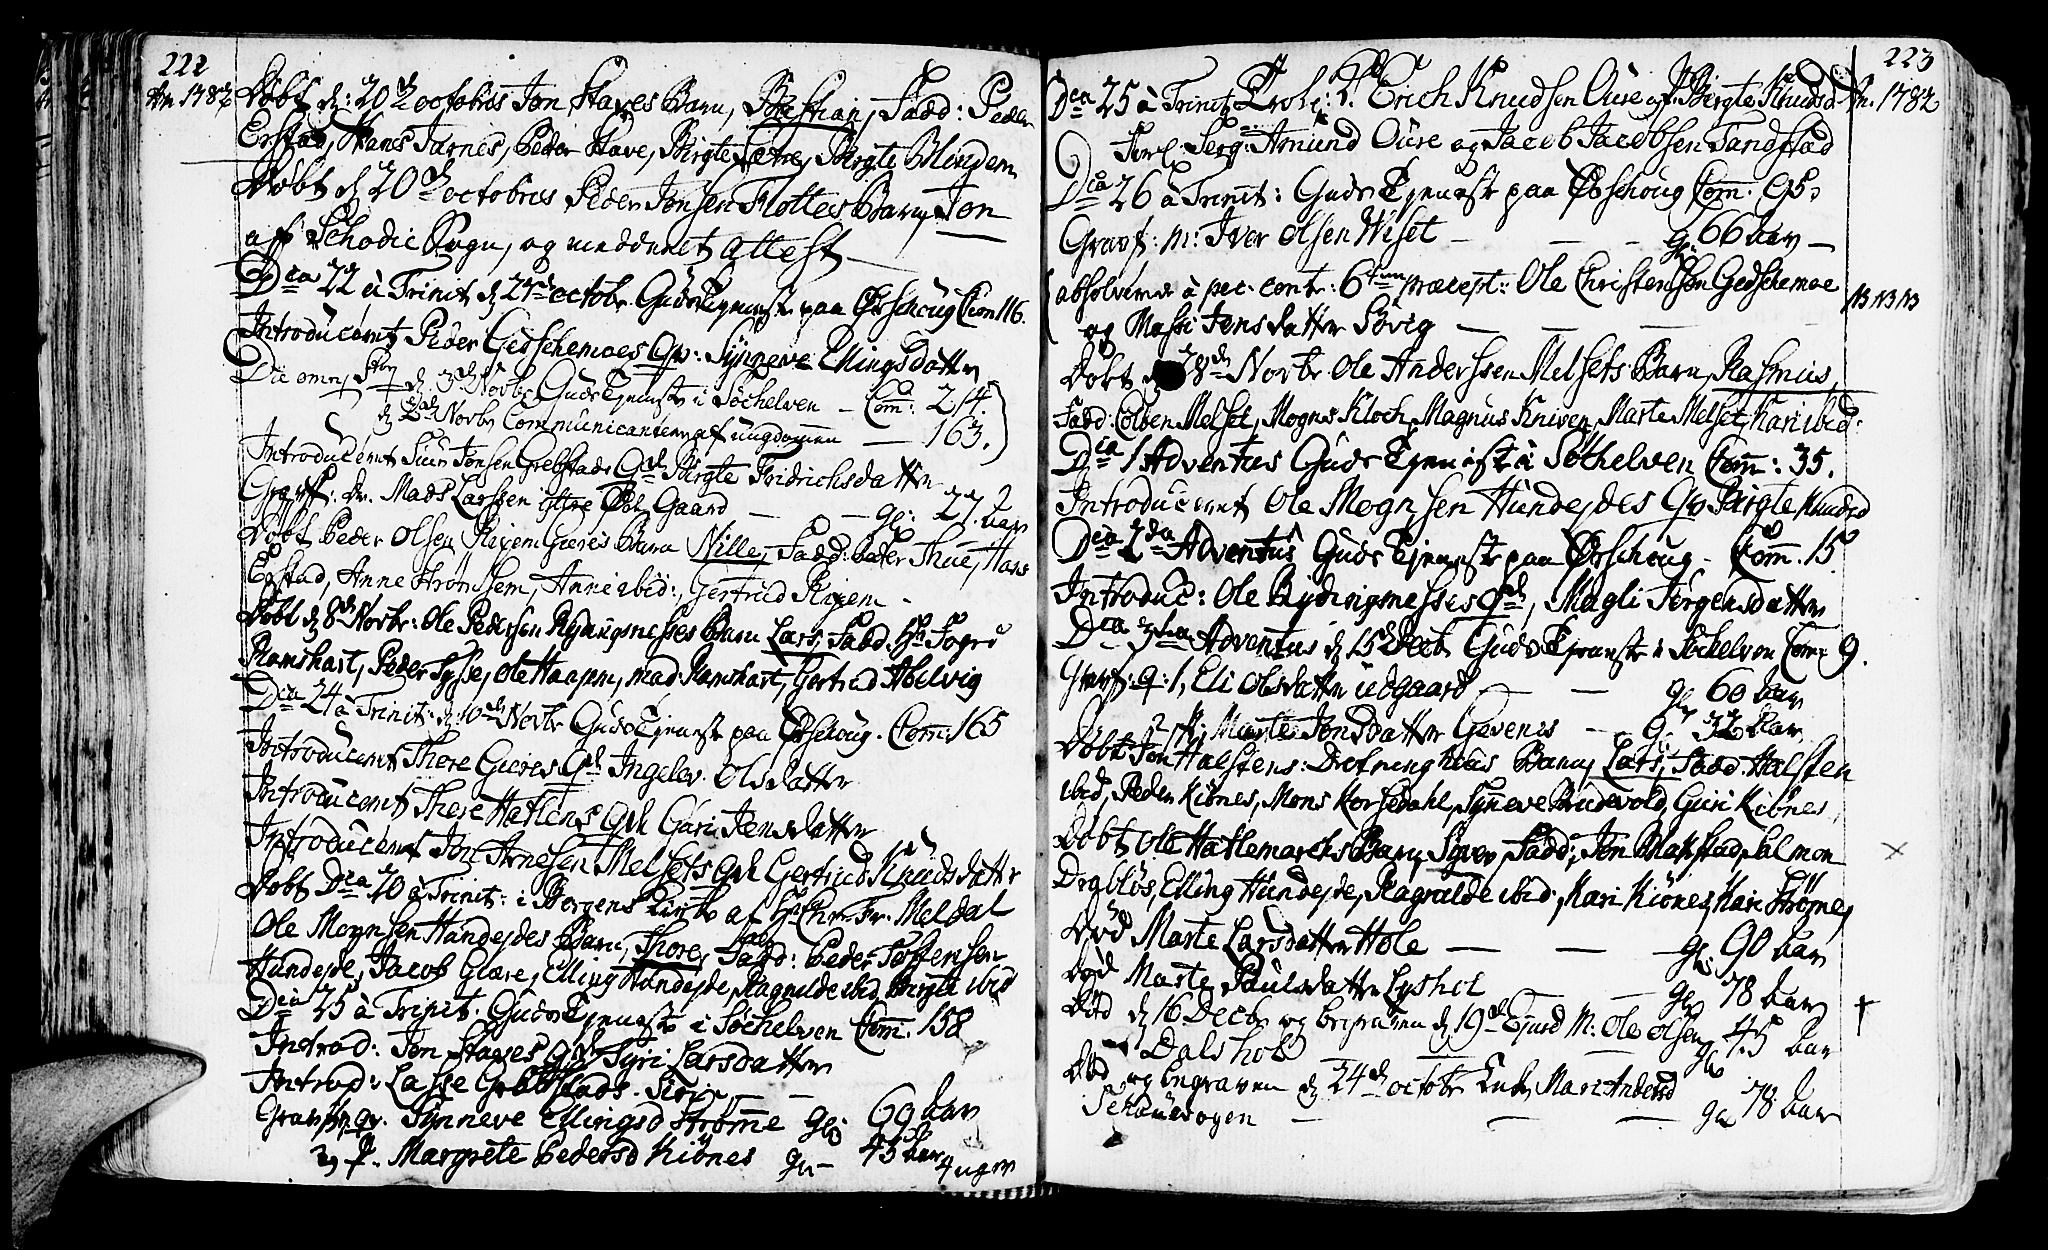 222
An 1782
Døbt d: 20de octobris Jon Staves Barn, Bastian, Fadd: Peder
Erstad, Hans Tarnes, Peder Stave, Birgte Sætre, Birgte Mindem
Døbt d 20de octobris Peder Jonsen Flottes Barn Jon
aff Schodie Sogn, og meddeelt attest
Dca 22 à Trinit d 27de octobr. Guds Tjeneste paa Ørschoug Com 116.
Introduceret Peder Gedschemoes Qv: Synneve Ellingsdatter
Die omn. Stor
d. 3de Novbr Guds Tjeneste i Søchelven - Com: 214.
d 2de Novbr Communicanterne af ungdommen — 163.
Introduceret Siur Jonsen Grebstads Qde Birgte Fridrichsdatter
Gravf: Dr. Mads Larssen Gaard — gl: 27. Aar
Døbt Peder Olsen Barn Nille, Fadd: Peder Thue, Hans
Egstad, Anne Strømshem, Anne ibid:, Gertrud
Døbt d 8de Novbr: Ole Pedersen Rydningsnesses Barn Lars, Fadd: Hr Fogd
Ramshart, Peder Sysse, Ole Haagen, mad: Ramshart, Gertrud Abelvig
Dca 24 à Trinit: d: 10de Novbr Guds Tjeneste paa Ørschoug. Com: 165
Introduceret Thore Giæres Qde Ingelev Olsdatter
Introduceret There Hatlens Qde Guri Jensdatter
Introduceret Jon Arnesen Melsets Qde Gertrud Knudsdatter
Døbt Dca 20 à Trinit: i Borgens Kirke af Hr Chr. Fr. Meldal
Ole Mognsen Hundejdes Barn, Thore, Fadd: Peder Toffensen
Hundejde, Jacob Giære, Elling Hundejde, Ragnilde ibid, Birgte ibid
Dca 25 à Trinit. Guds Tjeneste i Søchelven Com: 158
Introd: Jon Staves Qde Syri Larsdatter
Introd: Lasse Grebstads
Gravf: qv. Synneve Ellingsd Strømme gl: 69 Aar
2, p. Margrete Pedersd Kiönes gl- 45 Aar 4 uger
223
An. 1782
Dca 25 à Trinit Trol: S. Erich Knudsen Oure og P. Birgte Knudsd
Forl: Serg: Amund Oure og Jacob Jacobsen Tandstad
Dca 26 à Trinit: Guds Tjeneste paa Ørschoug Com. 95.
Gravf: m: Iver Olsen Wiset — gl 66 Aar —
absolverede à pec: contr: 6tum præcept: Ole Christensen Gedschemoe
og Massi Jensdatter Søvig —
Døbt 28de Novbr Ole Anderssen Melsets Barn, Rasmus,
Fadd: Colben Melset, Mogns Kloch, Magnus Kniven, Marte Melset, Kari ibid:
Dca 1 Adventus Guds Tjeneste i Søchelven Com: 35.
Introduceret Ole Mognsen Hundejdes Qv Birgte Knudsd
Dca 2da Adventus Guds Tjeneste paa Ørschoug - Com. 15
Introduc: Ole Rydningsnesses Qde, Magli Jørgensdatter
Dca 3tia Adventus d 15 Decb Guds Tjeneste i Søchelven Com: 9.
Gravf: q: 1, Eli Olsdatter Uedgaard — gl 60 Aar
2 p: Marte Jonsdatter Gevenes — gl 32 Aar
Døbt Jon Halstens: Barn, Lars, Fadd: Halsten
ibid, Peder Kiönes, Mons Korsedahl, Synneve Brudevold, Guri Kiönes,
Døbt Ole Hatlemarchs Barn, Syver, Fadd: Jon Matstad, Salmon
Drabløs, Elling Hundejde, Ragnilde ibid, Kari Kiönes, Kari Strømme,
Død Marte Larsdatter Hole — gl 90 Aar
Død Marte Paulsdatter Lyshol — gl 78 Aar
Død d 16 Decbr og begraven d 19de Ejusd M: Ole Olsen
Dalshol gl 45 Aar
Død og begraven d 24de octobr Enke Mari Andersd
Schauevogen gl 78 Aar